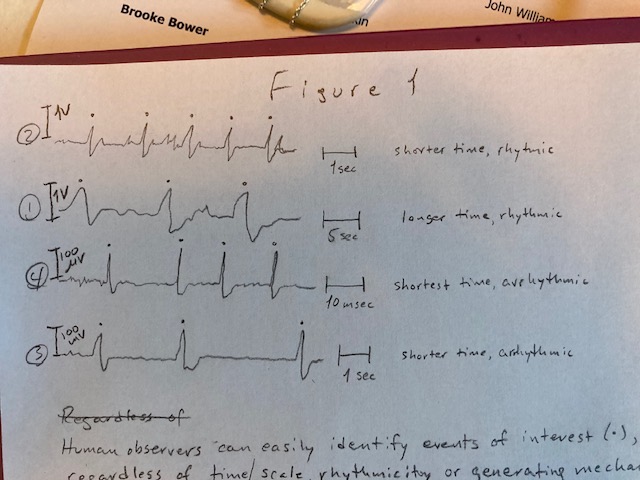 Brooke Bower
John William
Figure 1
② 1V 1 sec shorter time, rhytmic
① 1V 5 sec longer time, rhythmic
④ 100 μV 10 msec shortest time, arrhythmic
③ 100 μV 1 sec shorter time, arrhythmic
Regardless of
Human observers can easily identify events of interest (•),
regardless of time/scale, rhythmicity or generating mecha